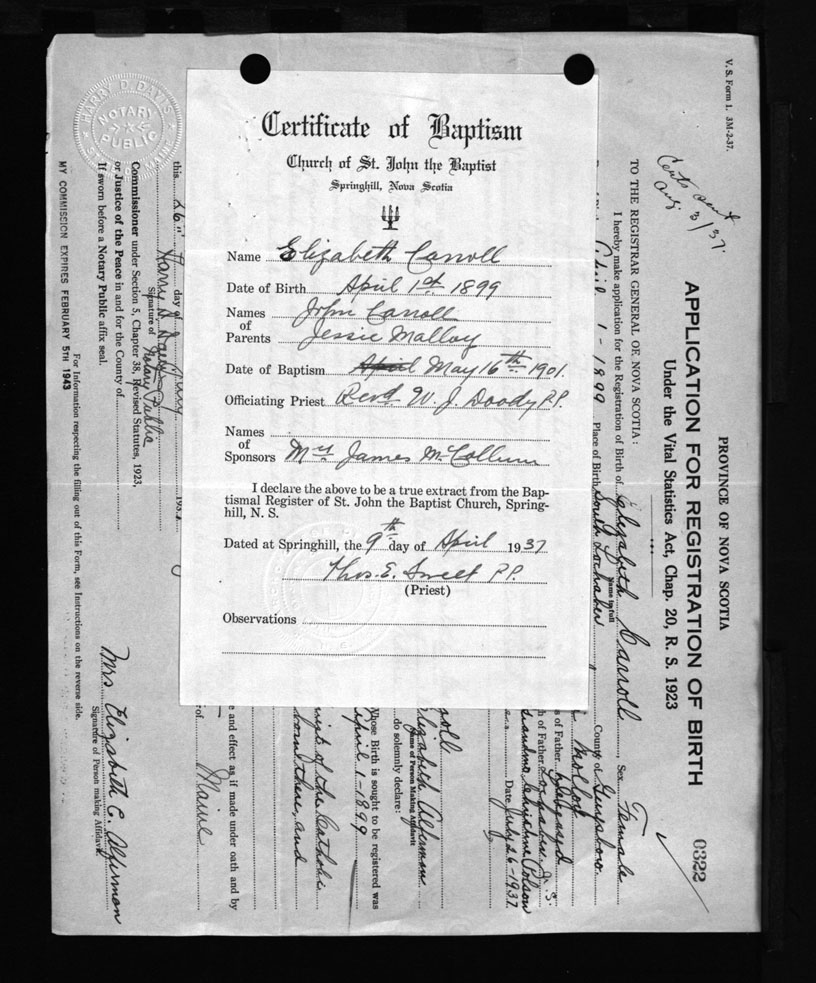 Certificate of Baptism
Church of St. John the Baptist
Springhill, Nova Scotia
Name Elizabeth Carroll
Date of Birth April 1st 1899
Names of Parents John Carroll
Jessie Malloy
Date of Baptism April May 16th 1901.
Officiating Priest Revd W. J. Doody P.P.
Names of Sponsors Mrs James McCallum
I declare the above to be a true extract from the Bap-
tismal Register of St. John the Baptist Church, Spring-
hill, N. S.
Dated at Springhill, the 9th day of April 1937
Thos. E. Sweet P.P.
(Priest)
Observations
V. S. Form 1. 3M-2-37.
Certs sent
Aug 3/37.
PROVINCE OF NOVA SCOTIA
APPLICATION FOR REGISTRATION OF BIRTH
0322
Under the Vital Statistics Act, Chap. 20, R. S. 1923
TO THE REGISTRAR GENERAL OF NOVA SCOTIA:
I hereby make application for the Registration of Birth of Elizabeth Carroll Sex Female
Name in full
April 1-1899 Place of Birth South Lochaber County of Guysboro.
Molloy
s of Father deceased
h of Father Lochaber N.S.
Date July 26-1937
roll
Elizabeth Alderman
Name of Person Making Affidavit
do solemnly declare:
Whose Birth is sought to be registered was
April 1-1899
of the Catholic
born there, and
e and effect as if made under oath and by
of Maine
this 26" day of July 193
Harry D. Davis
Signature of Notary Public
Commissioner under Section 5, Chapter 38, Revised Statutes, 1923,
or Justice of the Peace in and for the County of
If sworn before a Notary Public affix seal.
Mrs Elizabeth C. Alderman
Signature of Person making Affidavit.
For Information respecting the filling out of this Form, see Instructions on the reverse side.
MY COMMISSION EXPIRES FEBRUARY 5TH 1943
HARRY D. DAVIS
NOTARY PUBLIC